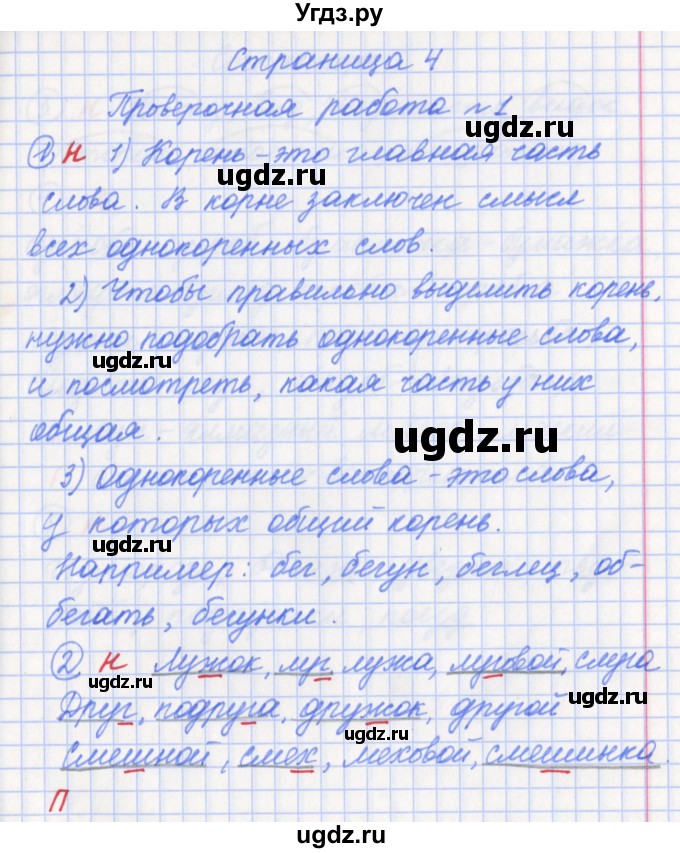 Угдз.ру
Страница 4
Проверочная работа №1
ugdz.ru
① Н 1) Корень - это главная часть
ugdz.ru
слова. В корне заключен смысл
всех однокоренных слов.
2) Чтобы правильно выделить корень,
нужно подобрать однокоренные слова,
ugdz.ru
и посмотреть, какая часть у них
общая.
ugdz.ru
3) Однокоренные слова - это слова,
у которых общий корень.
ugdz.ru
Например: бег, бегун, беглец, об-
бегать, бегунки.
② Н Лужок, луг, лужа, луговой, слуга
ugdz.ru
ugdz.ru
Друг, подруга, дружок, другой
ugdz.ru
Смешной, смех, меховой, смешинка.
П
ugdz.ru